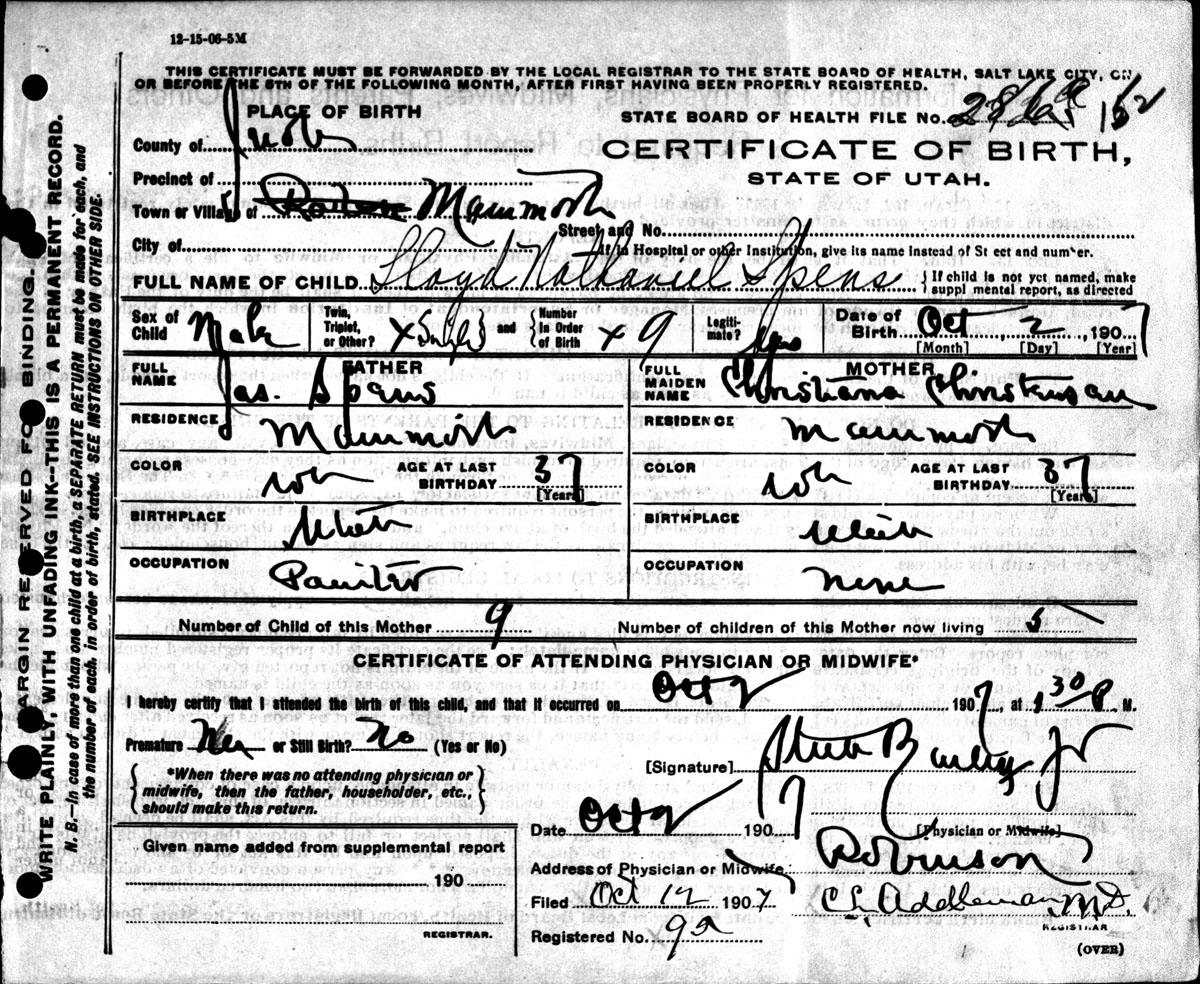 12-15-06-5M
THIS CERTIFICATE MUST BE FORWARDED BY THE LOCAL REGISTRAR TO THE STATE BOARD OF HEALTH, SALT LAKE CITY, ON
OR BEFORE THE 5TH OF THE FOLLOWING MONTH, AFTER FIRST HAVING BEEN PROPERLY REGISTERED.
PLACE OF BIRTH
STATE BOARD OF HEALTH FILE No.
County of Juab
CERTIFICATE OF BIRTH,
STATE OF UTAH.
Precinct of
Town or Village of Mammoth
Street and No.
City of
If in Hospital or other Institution, give its name instead of St eet and number.
FULL NAME OF CHILD Lloyd Nathaniel Spens
{ If child is not yet named, make
suppl mental report, as directed
Sex of Child Male
Twin, Triplet, or Other? X Single
and
Number in Order of Birth X 9
Legiti-mate? Yes
Date of Birth Oct 2, 1907
[Month] [Day] [Year]
FATHER
FULL NAME Jas. Spens
RESIDENCE Mammoth
COLOR wh
AGE AT LAST BIRTHDAY 37
[Years]
BIRTHPLACE Utah
OCCUPATION Painter
MOTHER
FULL MAIDEN NAME Christiana Christensen
RESIDENCE Mammoth
COLOR wh
AGE AT LAST BIRTHDAY 37
[Years]
BIRTHPLACE Utah
OCCUPATION none
Number of Child of this Mother 9
Number of children of this Mother now living 5
CERTIFICATE OF ATTENDING PHYSICIAN OR MIDWIFE*
I hereby certify that I attended the birth of this child, and that it occurred on Oct 2 1907, at 1 30 P M.
Premature or Still Birth? No (Yes or No)
{ *When there was no attending physician or
midwife, then the father, householder, etc.,
should make this return. }
[Signature] Steele Bailey Jr
[Physician or Midwife]
Date Oct 2 1907
Address of Physician or Midwife Robinson
Given name added from supplemental report
190
REGISTRAR.
Filed Oct 12 1907
M.D.
REGISTRAR
Registered No. 92
(OVER)
MARGIN RESERVED FOR BINDING.
WRITE PLAINLY, WITH UNFADING INK--THIS IS A PERMANENT RECORD.
N. B.—In case of more than one child at a birth, a SEPARATE RETURN must be made for each, and
the number of each, in order of birth, stated. SEE INSTRUCTIONS ON OTHER SIDE.